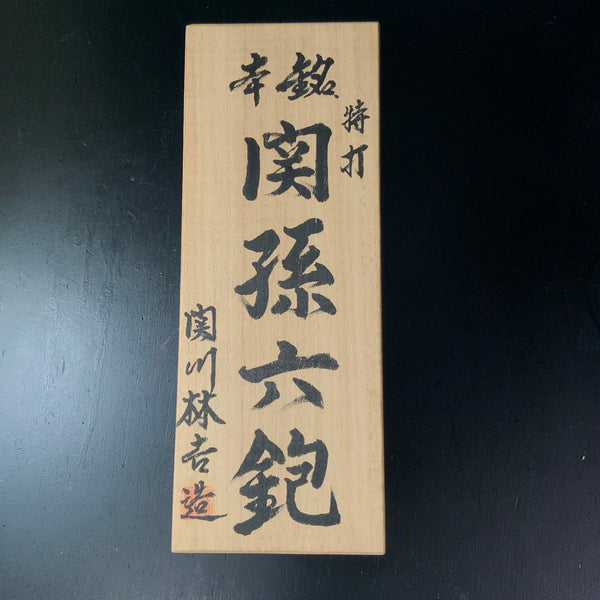 銘本
特打
関孫六鉋
関川林吉造